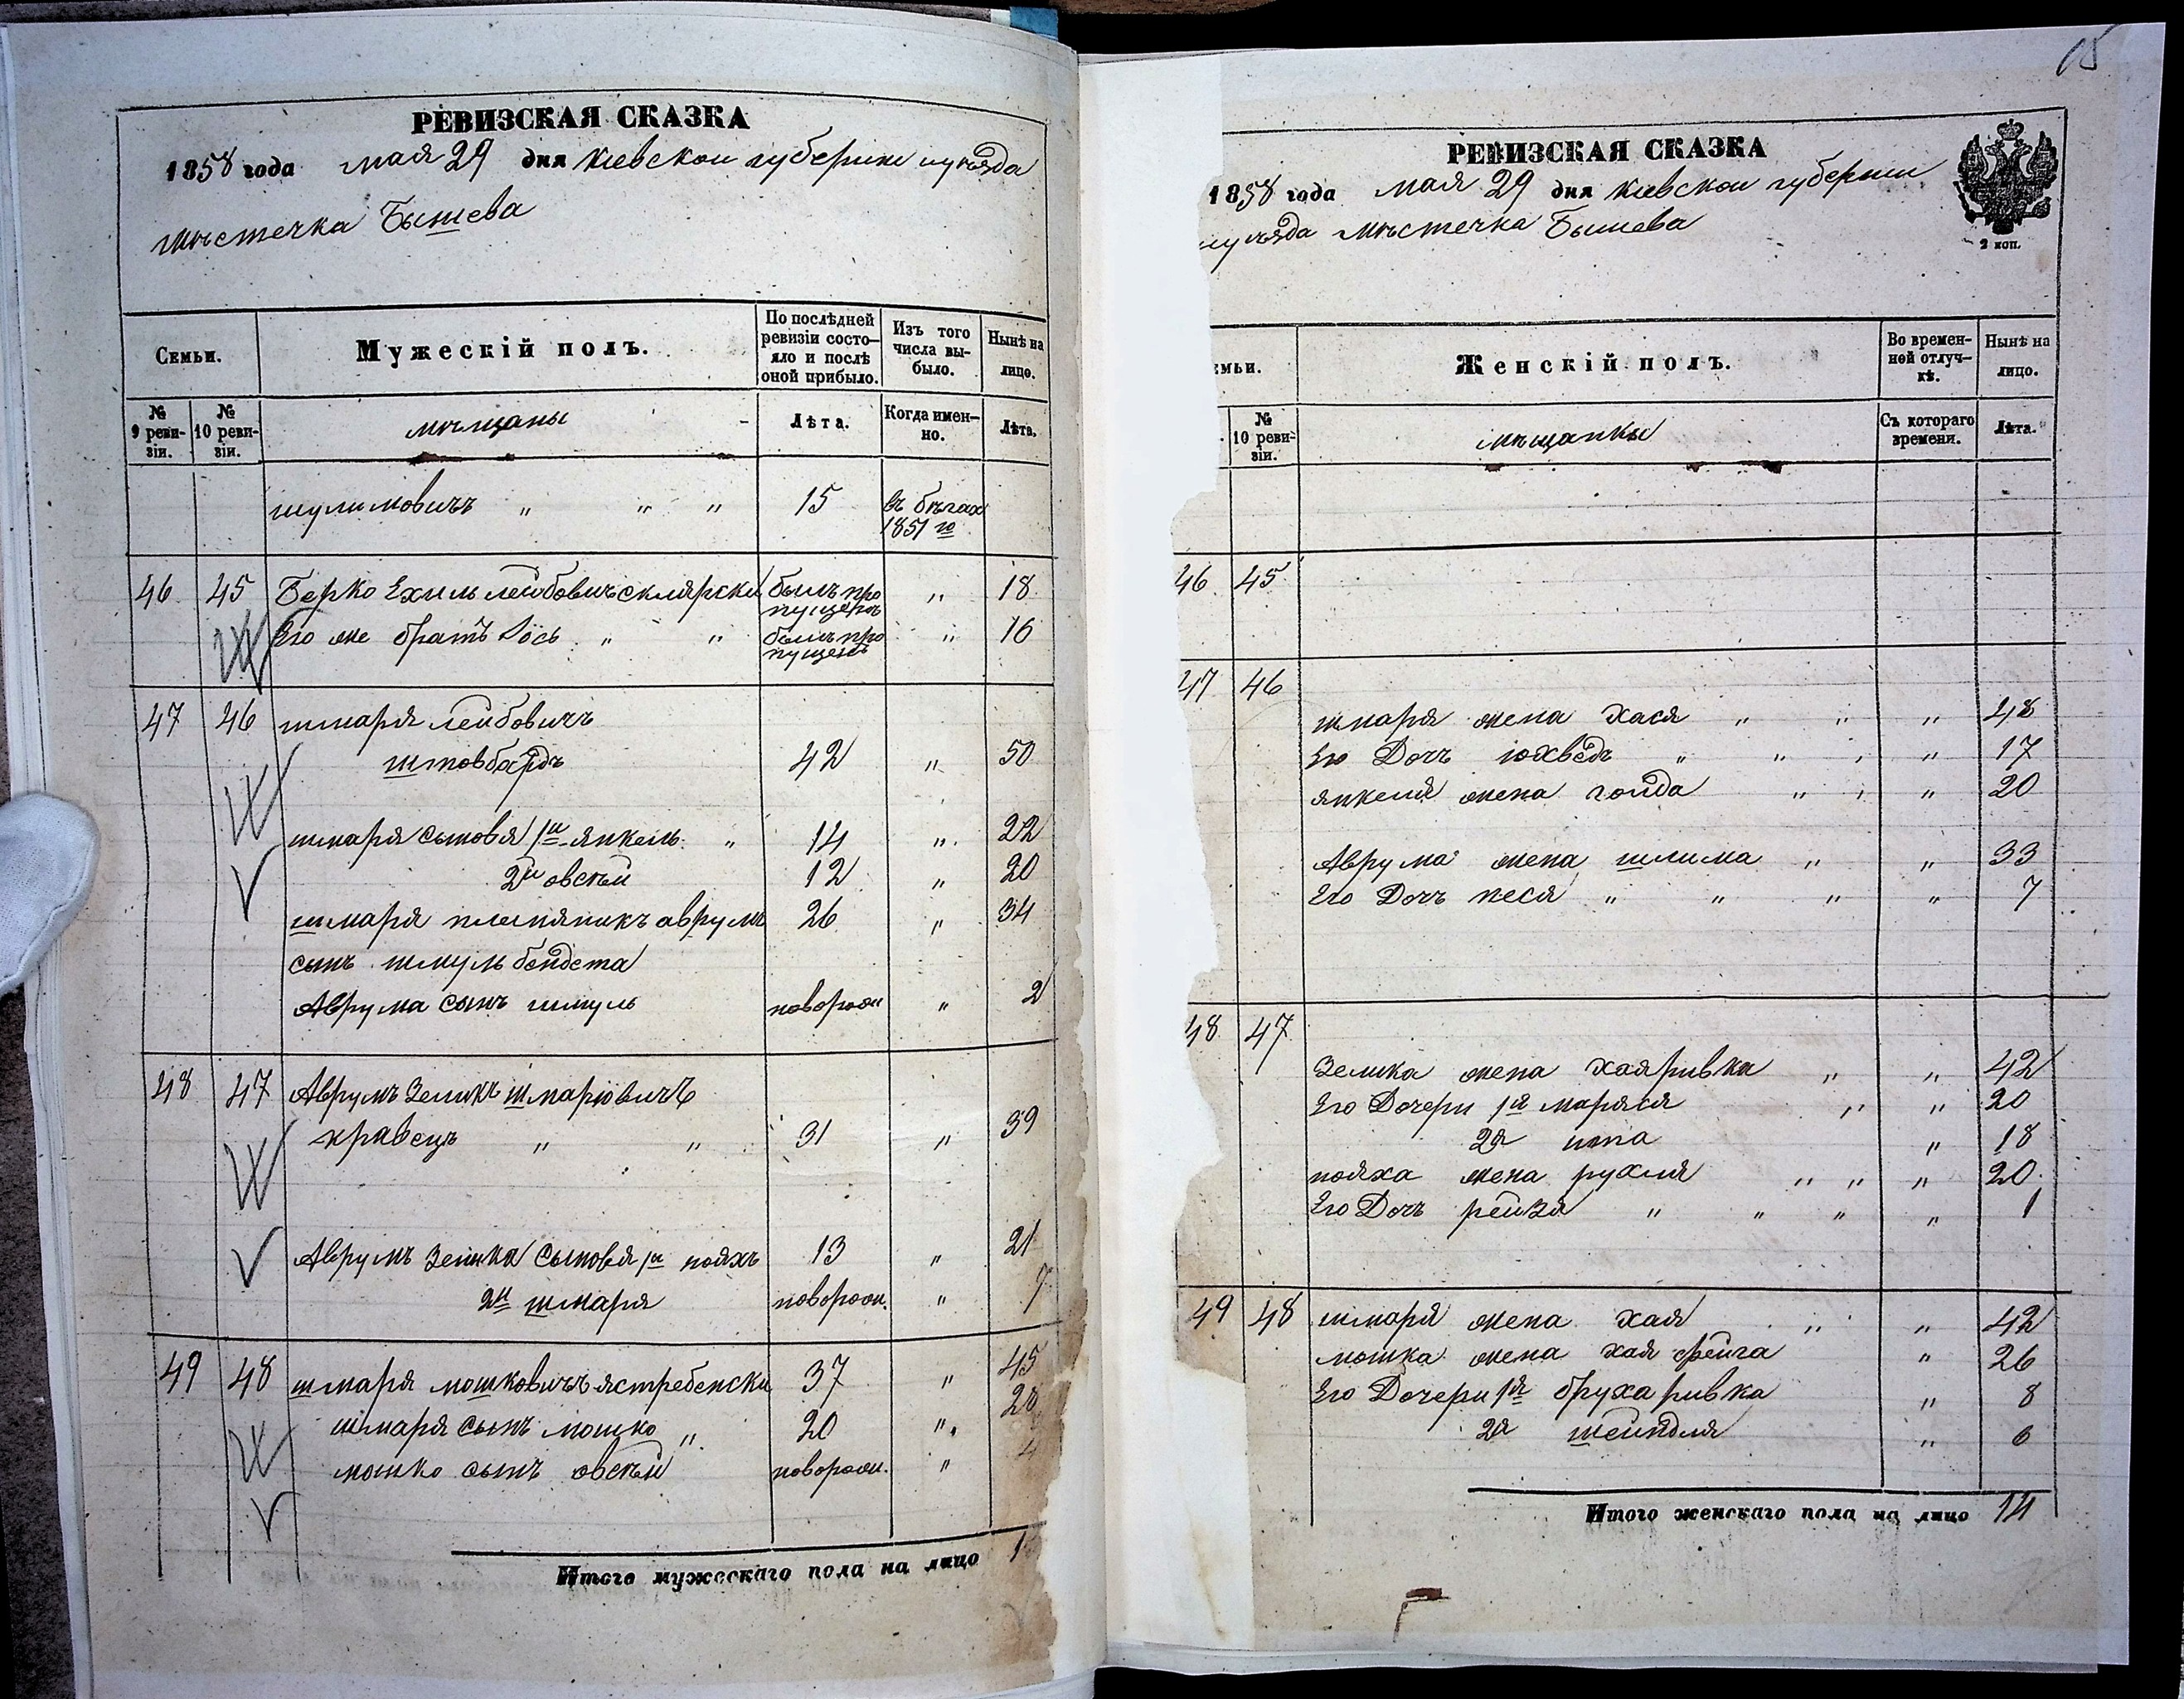 РЕВИЗСКАЯ СКАЗКА
1858 года мая 29 дня Киевской губернии и уѣзда
мѣстечка Бышева
Семьи.
Мужескій полъ.
По послѣдней ревизіи состояло и послѣ оной прибыло.
Изъ того числа выбыло.
Нынѣ на лицо.
№ 9 ревизіи.
№ 10 ревизіи.
мѣщаны
Лѣта.
Когда именно.
Лѣта.
шулимовичъ " " " 15 въ бѣгах
1851 го
46 45 Берко Ехиль лейбовичъ склярски былъ про " 18
пущенъ
Его же братъ Іось " " былъ про " 16
пущенъ
47 46 шмаря лейбовичъ
штовбардъ 42 " 50
шмаря сыновя 1й янкель " 14 " 22
2й овсѣй 12 " 20
шмаря племяникъ аврумъ 26 " 34
сынъ шмуль бендета
Аврума сынъ шмуль новорож " 2
48 47 Аврумъ Зеликъ шмаріовичъ
кравецъ " " 31 " 39
Аврумъ Зелика сыновя 1й нояхъ 13 " 21
2й шмаря новорож. " 7
49 48 шмаря мошковичъ ястребенски 37 " 45
шмаря сынъ мошко " 20 " 28
мошко сынъ овсѣй новорож. " 4
Итого мужескаго пола на лицо
15
РЕВИЗСКАЯ СКАЗКА
1858 года мая 29 дня Киевской губернии
и уѣзда мѣстечка Бышева
2 коп.
емьи.
Женскій полъ.
Во временной отлучкѣ.
Нынѣ на лицо.
№ 10 ревизіи.
мѣщанки
Съ котораго времени.
Лѣта.
46 45
47 46
шмаря жена хася " " " 48
Его Дочь юхведъ " " " " 17
янкеля жена голда " " " 20
Аврума жена шлима " " 33
Его Дочь песя " " " " 7
48 47
Зелика жена хаяривка " " 42
Его Дочери 1я маряся " " 20
2я ита " 18
нояха жена рухля " " " 20
Его Дочь рейзя " " " " 1
49 48 шмаря жена хая " " 42
мошка жена хая фейга " 26
Его Дочери 1я бруха ривка " 8
2я шейндля " 6
Итого женскаго пола на лицо 14